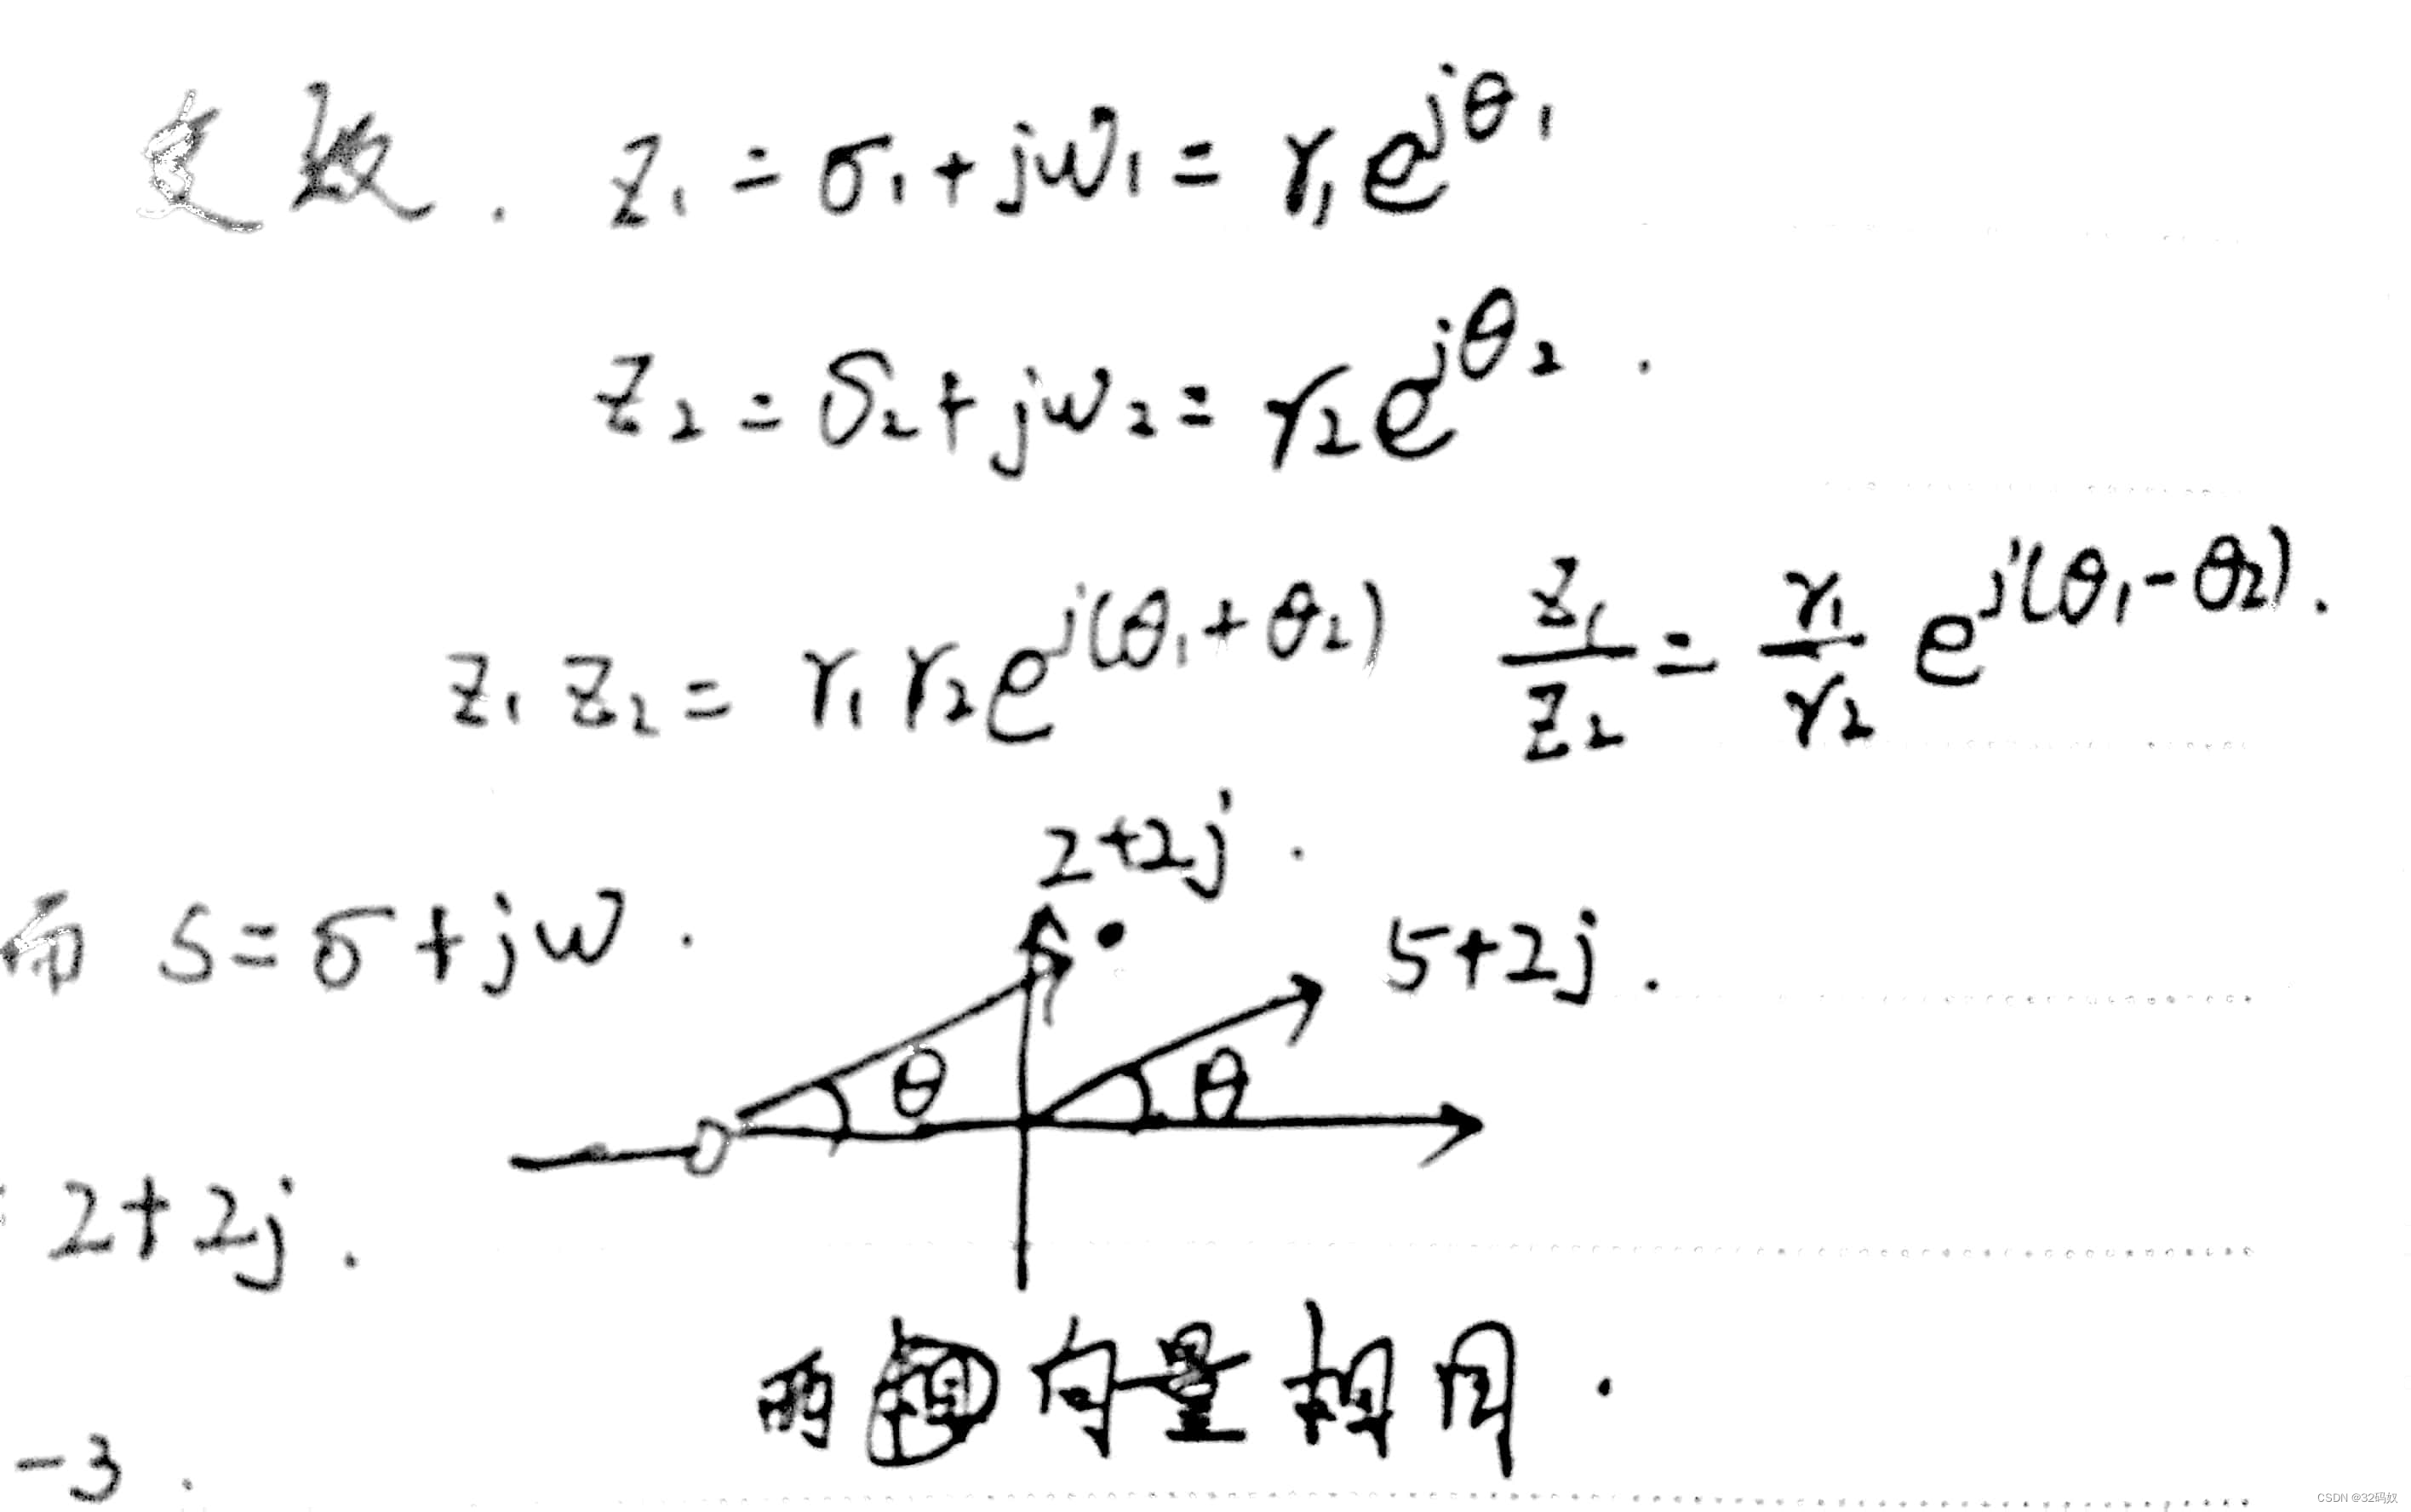 复数. z₁ = σ₁ + jω₁ = r₁e^{jθ₁}
z₂ = δ₂ + jω₂ = r₂e^{jθ₂}.
z₁ z₂ = r₁ r₂ e^{j(θ₁+θ₂)} z₁/z₂ = r₁/r₂ e^{j(θ₁-θ₂)}.
2+2j.
而 s = σ + jω.
5+2j.
θ θ
2+2j.
两 向量相同.
-3.
CSDN @32码奴